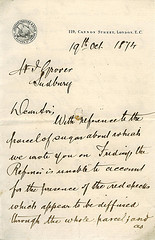 118, Cannon Street, London, E.C.
19th Oct. 1894
Grover
Sudbury
Dear Sir,
With reference to the
parcel of sugar about which
we wrote you on Friday, the
Refiner is unable to account
for the presence of the red specks
which appear to be diffused
through the whole parcel, and